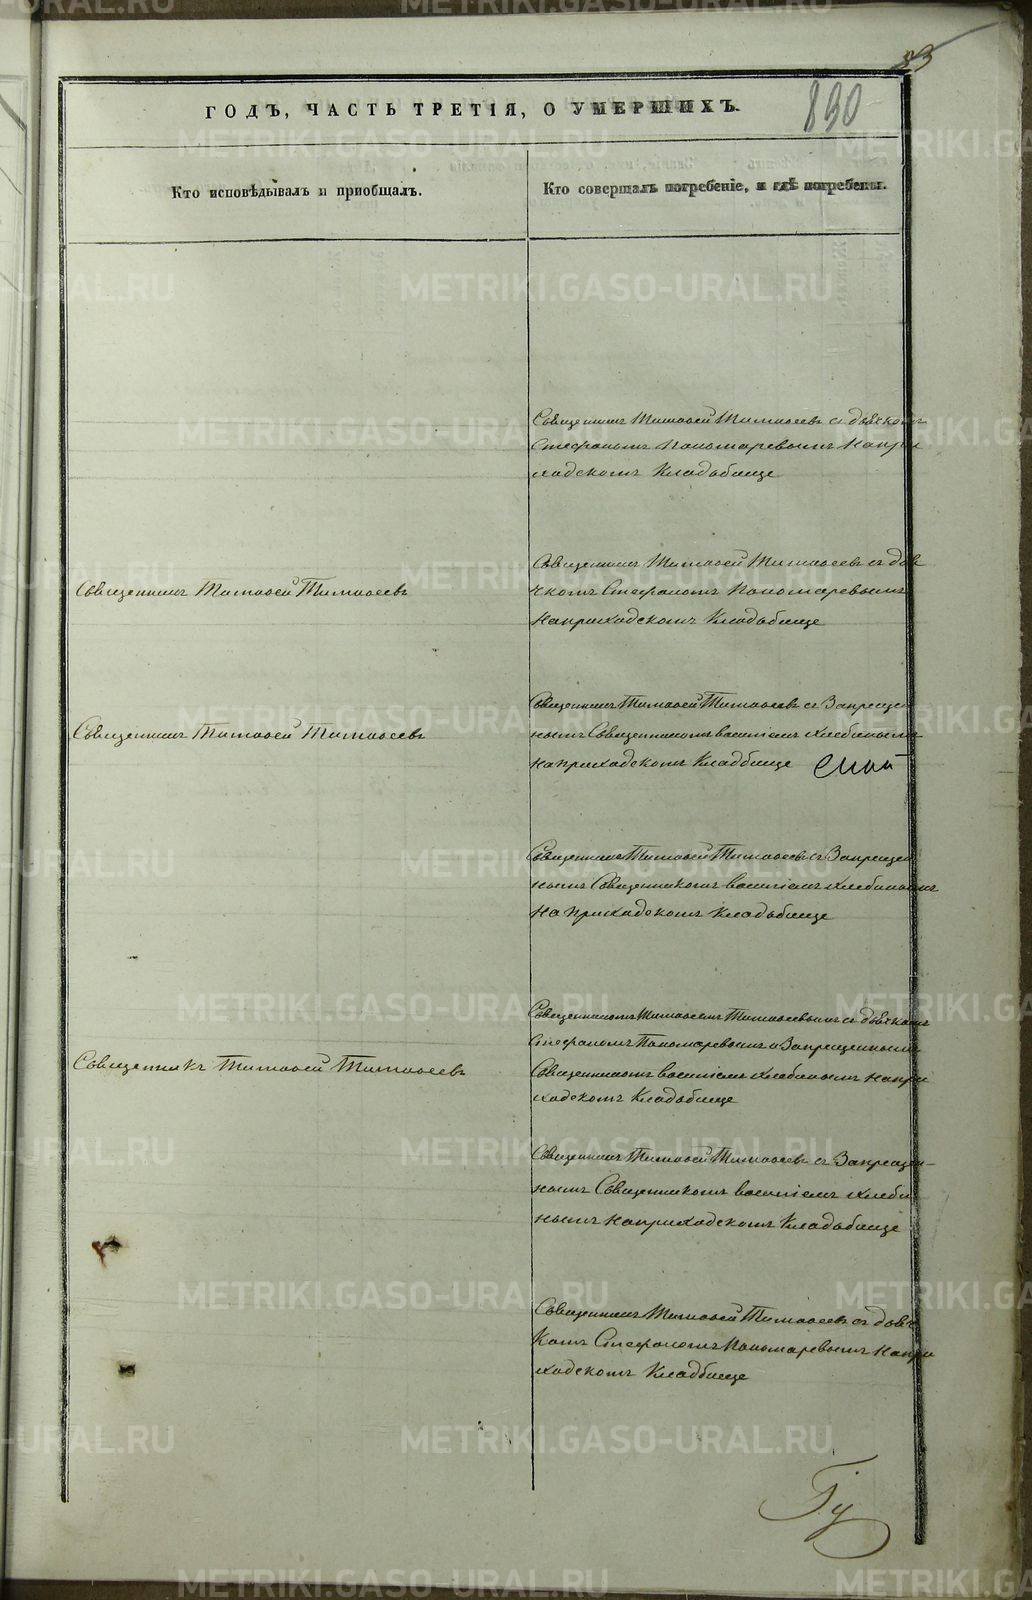 83
830
ГОДЪ, ЧАСТЬ ТРЕТІЯ, О УМЕРШИХЪ.
Кто исповѣдывалъ и пріобщалъ.
Кто совершалъ погребеніе, и гдѣ погребены.
Священникъ Тимоѳей Тимоѳеевъ съ дьячкомъ
Стефаномъ Пономаревымъ На при
ходскомъ Кладьбище
Священникъ Тимоѳей Тимоѳеевъ
Священникъ Тимоѳей Тимоѳеевъ съ дья
чкомъ Стефаномъ Пономаревымъ
На приходскомъ Кладьбище
Священникъ Тимоѳей Тимоѳеевъ
Священникъ Тимоѳей Тимоѳеевъ съ Запрещен
нымъ Священникомъ Хлебинымъ
На приходскомъ Кладбище
Священникъ Тимоѳей Тимоѳеевъ съ Запрещен
нымъ Священникомъ Хлебинымъ
На приходскомъ Кладьбище
Священникъ Тимоѳей Тимоѳеевъ
Священникомъ Тимоѳеемъ Тимоѳеевымъ съ дьячкомъ
Стефаномъ Пономаревымъ и Запрещеннымъ
Священникомъ Хлебинымъ На при
ходскомъ Кладьбище
Священникъ Тимоѳей Тимоѳеевъ съ Запрещен-
нымъ Священникомъ Хлеби
нымъ На приходскомъ Кладьбище
Священникъ Тимоѳей Тимоѳеевъ съ дьяч
комъ Стефаномъ Пономаревымъ На при
ходскомъ Кладбище
METRIKI.GASO-URAL.RU